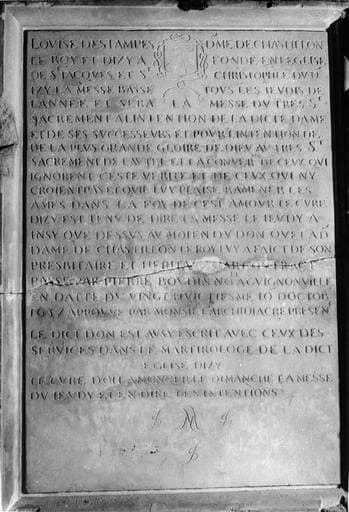 LOVISE DESTAMPES DME DE CHASTILLON
LE ROY ET DIZY A FONDE EN LEGLISE
DE ST IACQVES ET ST CHRISTOPHLE DVD
IZY LA MESSE BASSE TOVS LES IEVDIS DE
LANNEE ET SERA LA MESSE DV TRES ST
SACREMENT A LINTENTION DE LA DICTE DAME
ET DE SES SVCCESSEVRS ET POVR LINTENTION DE
DE LA PLVS GRANDE GLOIRE DE DIEV AV TRES ST
SACREMENT DE LAVTEL ET LA CONVER DE CEVX QVI
IGNORENT CESTE VERITE ET DE CEVX QVI NY
CROIENT PAS ET QVIL LVY PLAISE RAMENER LES
AMES DANS LA FOY DE CEST AMOVR LE CVRE
DIZY EST TENV DE DIRE LA MESSE LE IEVDY A
INSY QVE DESSVS AV MOIEN DV DON QVE LAD
DAME DE CHASTILLON LE ROY LVY A FAICT DE SON
PRESBITAIRE ET PAR CONTRACT
PASSE PAR PIERRE BOVDIN A
EN DATTE DV VINGT OCTOB
1637 APPROVVE PAR MONSIE LARCHIDIACRE PRESEN
LE DICT DON EST AVSY ESCRIT AVEC CEVX DES
SERVICES DANS LE MARTIROLOGE DE LA DICT
EGLISE DIZY
LE CVRE DOIT ANONCER LE DIMANCHE LA MESSE
DV IEVDY ET EN DIRE LES INTENTIONS